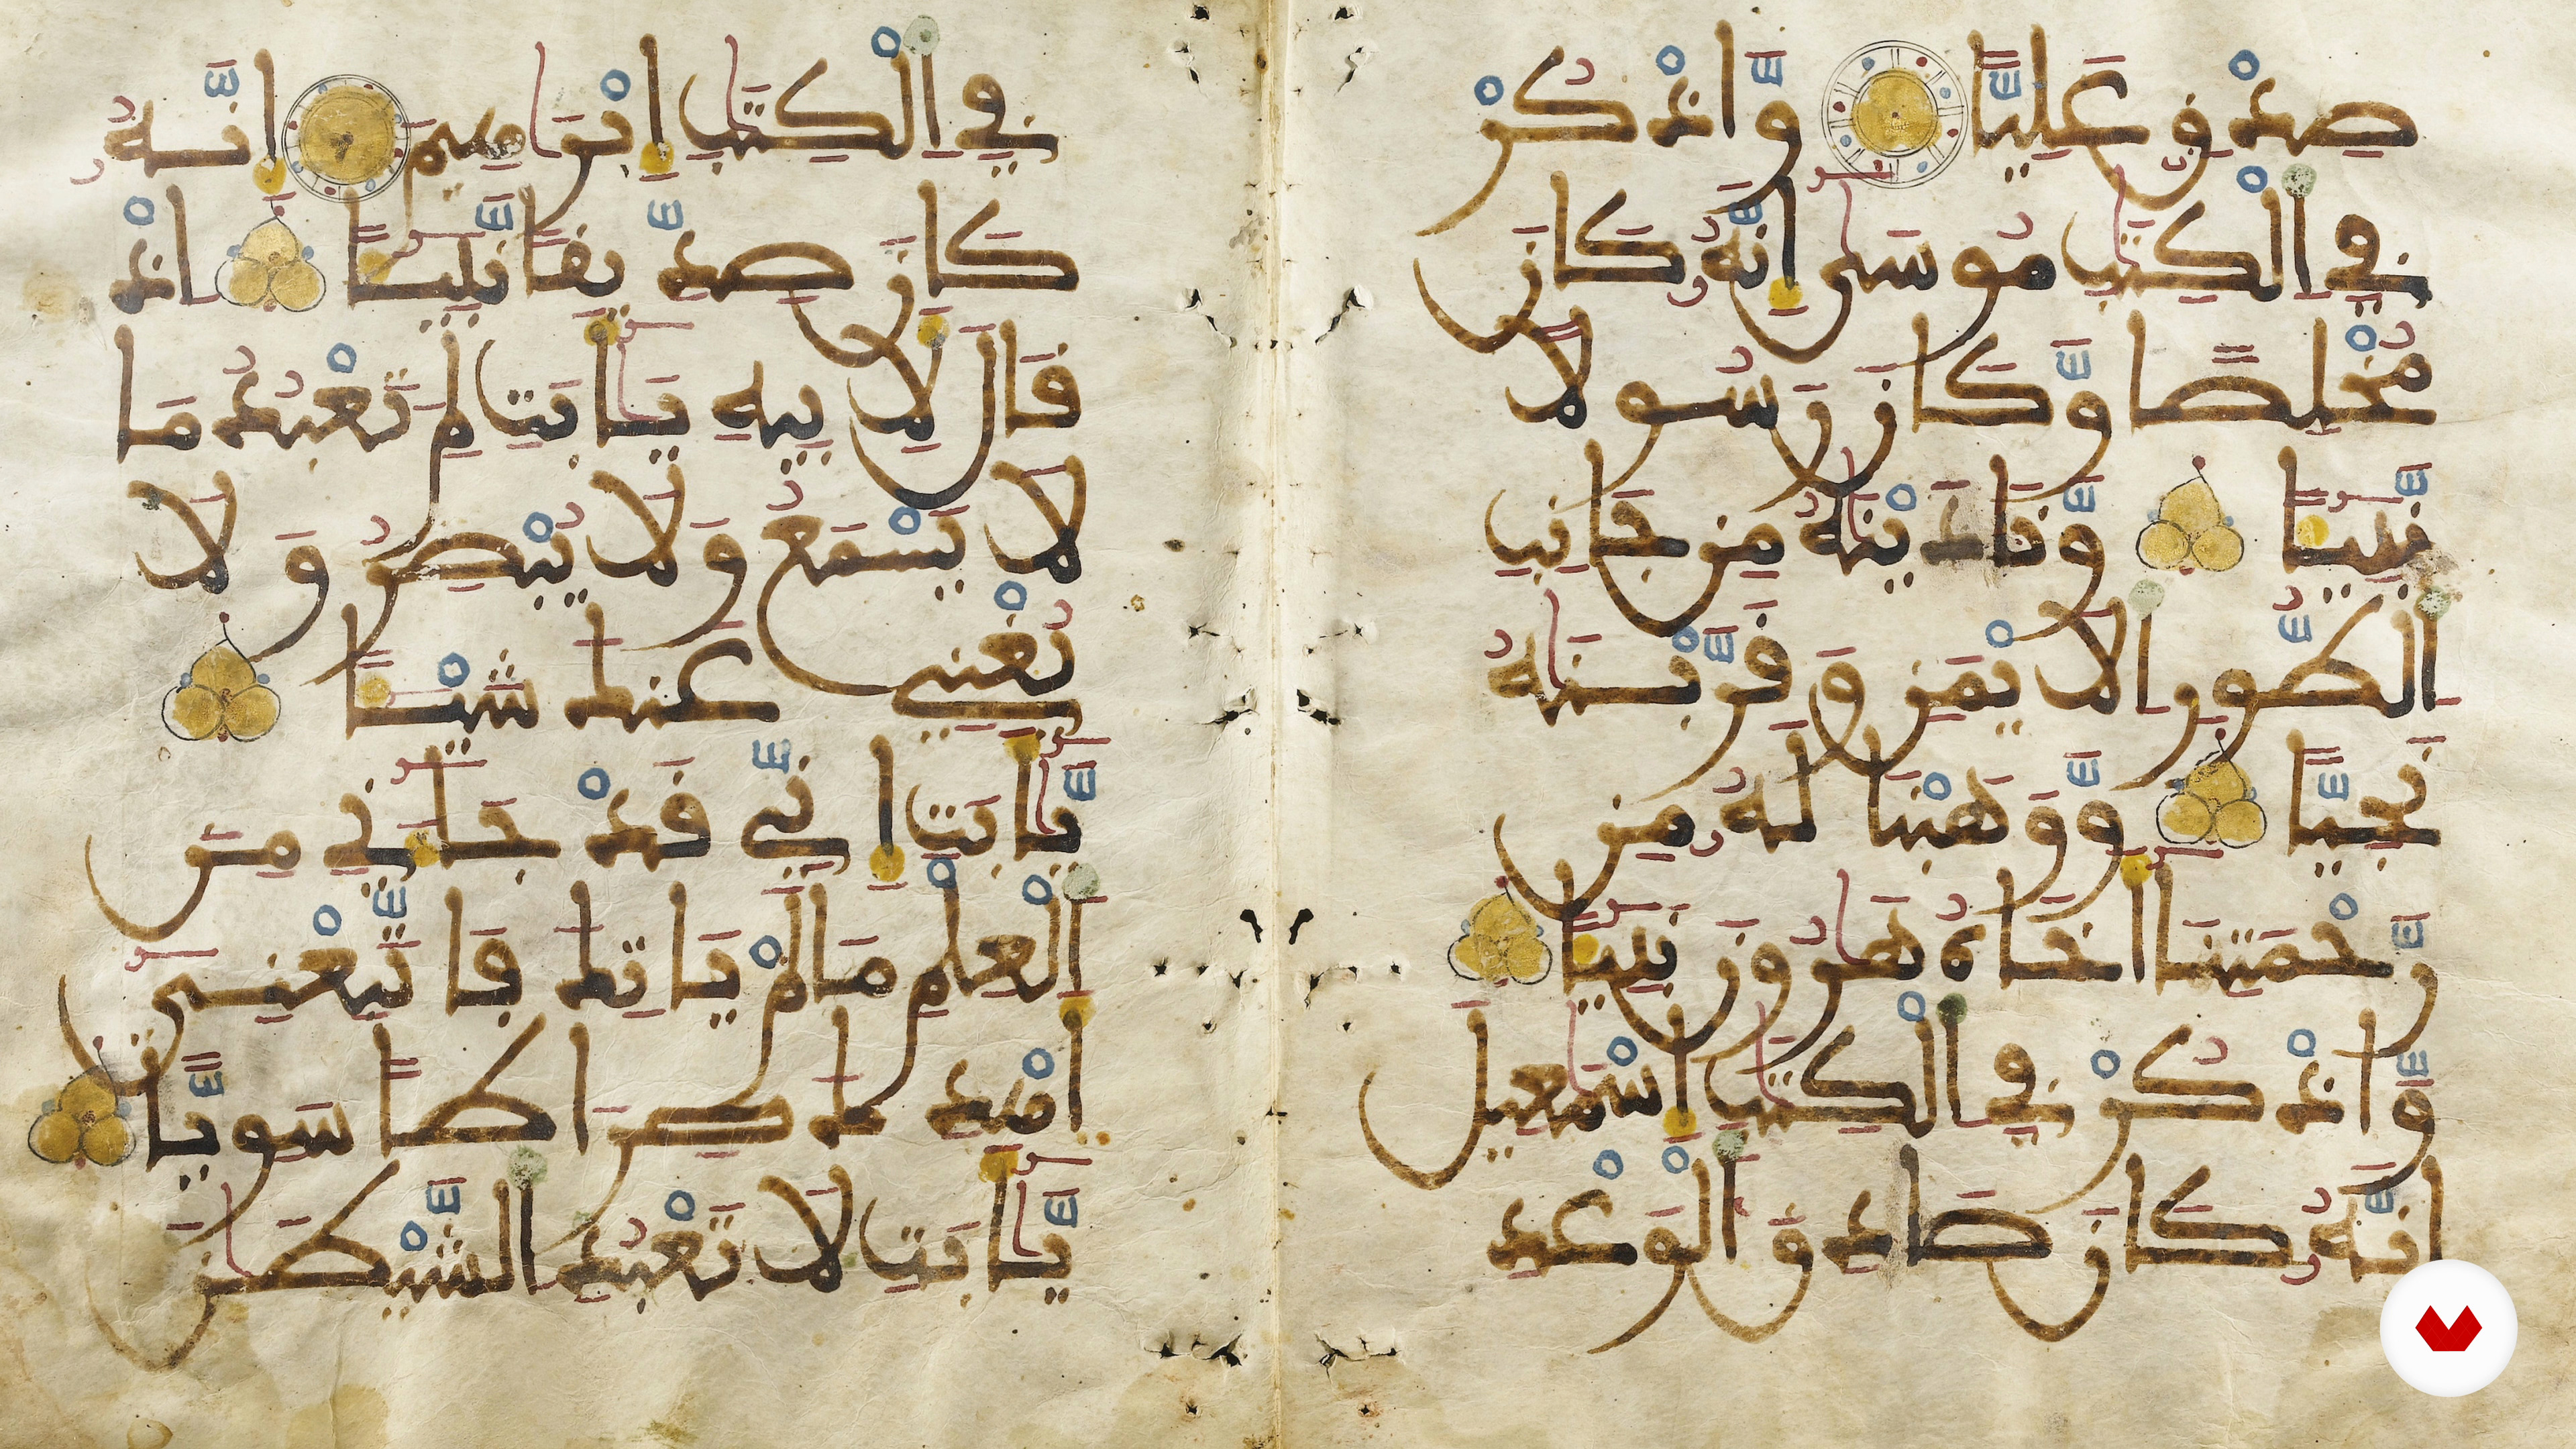 صِدْقٍ عَلِيًّا وَّاذْكُرْ
فِي الْكِتَٰبِ مُوسَىٰ إِنَّهُ كَانَ
مُخْلِصًا وَّكَانَ رَسُولًا
نَّبِئًا وَّنَادَيْنَٰهُ مِن جَانِبِ
الطُّورِ الْأَيْمَنِ وَقَرَّبْنَٰهُ
نَجِيًّا وَّوَهَبْنَا لَهُ مِن
رَّحْمَتِنَا أَخَاهُ هَٰرُونَ نَبِئًا
وَّاذْكُرْ فِي الْكِتَٰبِ إِسْمَٰعِيلَ
إِنَّهُ كَانَ صَادِقَ الْوَعْدِ
فِي الْكِتَٰبِ إِبْرَٰهِيمَ إِنَّهُ
كَانَ صِدِّيقًا نَّبِئًا إِذْ
قَالَ لِأَبِيهِ يَٰأَبَتِ لِمَ تَعْبُدُ مَا
لَا يَسْمَعُ وَلَا يُبْصِرُ وَلَا
يُغْنِي عَنكَ شَيْـًٔا
يَّٰأَبَتِ إِنِّي قَدْ جَاءَنِي مِنَ
الْعِلْمِ مَا لَمْ يَأْتِكَ فَاتَّبِعْنِي
أَهْدِكَ صِرَاطًا سَوِيًّا
يَّٰأَبَتِ لَا تَعْبُدِ الشَّيْطَٰنَ